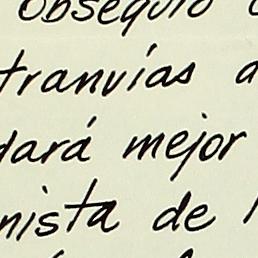 obsequio
tranvías a
dará mejor
nista de